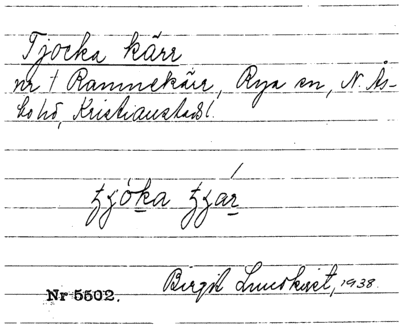 Tjocka kärr
nr † Rammekärr, Rya sn, N. Ås-
bo hd, Kristianstads l.
Birgit Lundkvist, 1938.
Nr 5502.